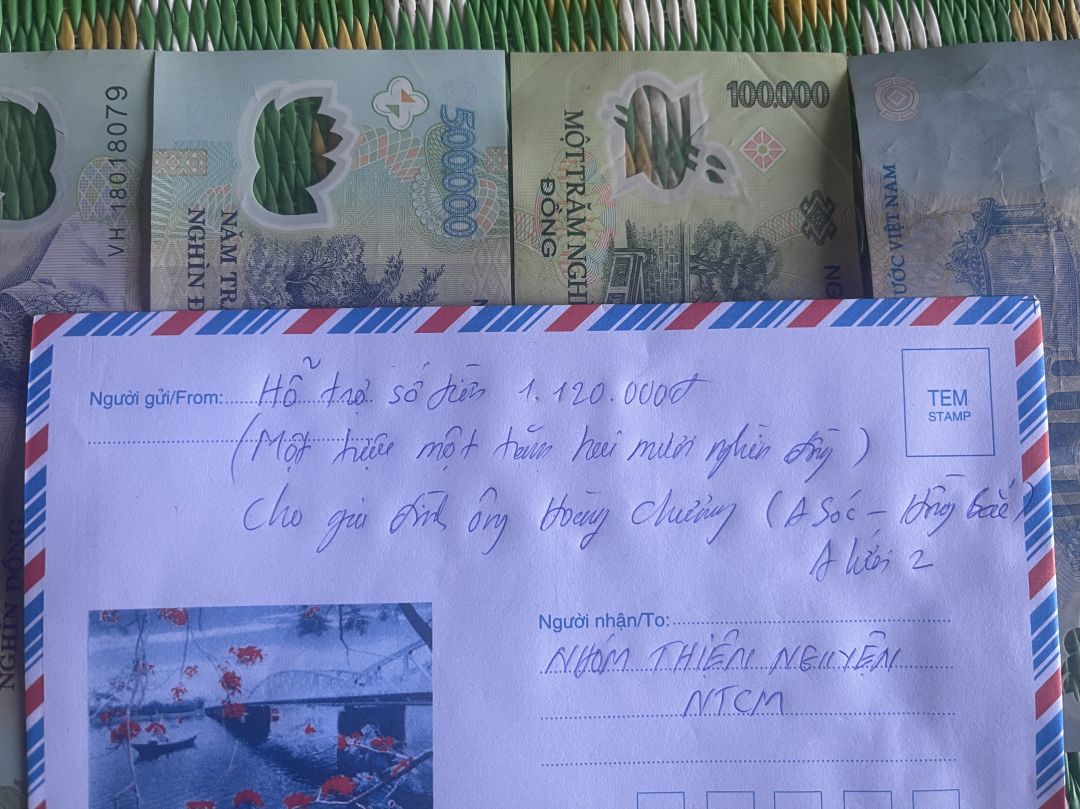 VH 18018079
500000
NĂM TRĂ
NGHÌN Đ
100.000
MỘT TRĂM NGHÌ
ĐỒNG
NG
ƯỚC VIỆT NAM
NGHÌN ĐỒNG
Người gửi/From: Hỗ trợ số tiền 1.120.000đ
(Một triệu một trăm hai mươi nghìn đồng)
Cho gia đình ông Hoàng Chưởng (A Sóc - Hồng Bắc)
A lưới 2
TEM
STAMP
Người nhận/To:
NHÓM THIỆN NGUYỆN
NTCM